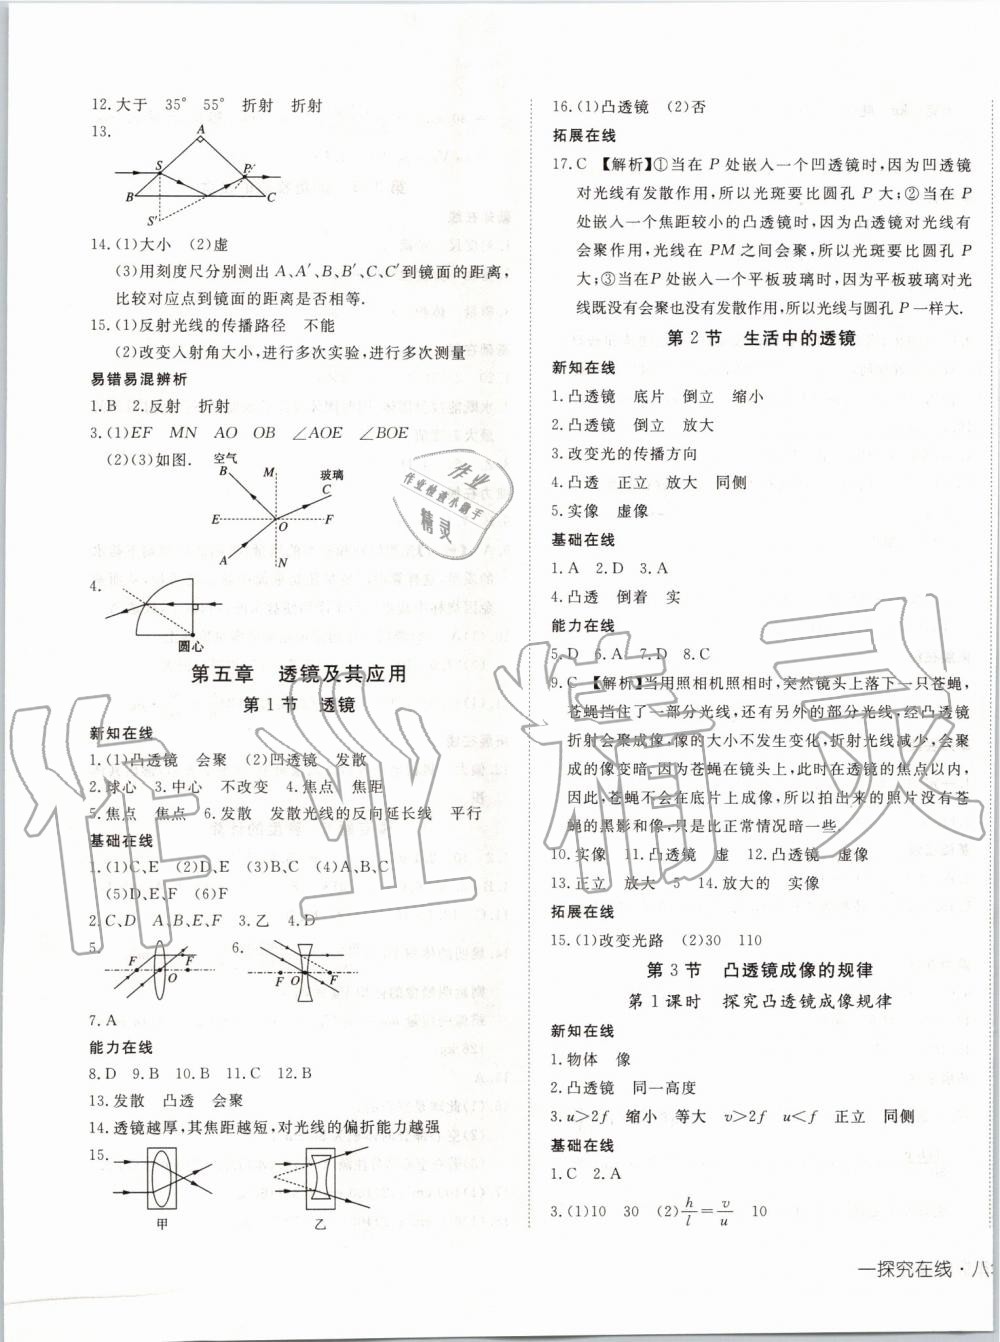 12.大于　35°　55°　折射　折射
13.
A
S
P'
B
C
S'
14.(1)大小　(2)虚
(3)用刻度尺分别测出 A、A′、B、B′、C、C′到镜面的距离，
比较对应点到镜面的距离是否相等.
15.(1)反射光线的传播路径　不能
(2)改变入射角大小，进行多次实验，进行多次测量
易错易混辨析
1.B　2.反射　折射
3.(1)EF　MN　AO　OB　∠AOE　∠BOE
(2)(3)如图.
空气
B
M
玻璃
C
E
O
F
A
N
4.
圆心
第五章　透镜及其应用
第1节　透镜
新知在线
1.(1)凸透镜　会聚　(2)凹透镜　发散
2.球心　3.中心　不改变　4.焦点　焦距
5.焦点　焦点　6.发散　发散光线的反向延长线　平行
基础在线
1.(1)C、E　(2)D、E　(3)B、C　(4)A、B、C
(5)D、E、F　(6)F
2.C、D　A、B、E、F　3.乙　4.D
5.
F
O
F
6.
F
O
F
7.A
能力在线
8.D　9.B　10.B　11.C　12.B
13.发散　凸透　会聚
14.透镜越厚，其焦距越短，对光线的偏折能力越强
15.
甲
乙
16.(1)凸透镜　(2)否
拓展在线
17.C　【解析】①当在 P 处嵌入一个凹透镜时，因为凹透镜
对光线有发散作用，所以光斑要比圆孔 P 大；②当在 P
处嵌入一个焦距较小的凸透镜时，因为凸透镜对光线有
会聚作用，光线在 PM 之间会聚，所以光斑要比圆孔 P
大；③当在P处嵌入一个平板玻璃时，因为平板玻璃对光
线既没有会聚也没有发散作用，所以光线与圆孔 P 一样大.
第2节　生活中的透镜
新知在线
1.凸透镜　底片　倒立　缩小
2.凸透镜　倒立　放大
3.改变光的传播方向
4.凸透　正立　放大　同侧
5.实像　虚像
基础在线
1.A　2.D　3.A
4.凸透　倒着　实
能力在线
5.D　6.A　7.D　8.C
9.C　【解析】当用照相机照相时，突然镜头上落下一只苍蝇，
苍蝇挡住了一部分光线，还有另外的部分光线，经凸透镜
折射会聚成像，像的大小不发生变化，折射光线减少，会聚
成的像变暗，因为苍蝇在镜头上，此时在透镜的焦点以内，
因此，苍蝇不会在底片上成像，所以拍出来的照片没有苍
蝇的黑影和像，只是比正常情况暗一些.
10.实像　11.凸透镜　虚　12.凸透镜　虚像
13.正立　放大　5　14.放大的　实像
拓展在线
15.(1)改变光路　(2)30　110
第3节　凸透镜成像的规律
第1课时　探究凸透镜成像规律
新知在线
1.物体　像
2.凸透镜　同一高度
3.u＞2f　缩小　等大　v＞2f　u＜f　正立　同侧
基础在线
1.C　2.A
3.(1)10　30　(2)h/l=v/u　10
一探究在线·八
作业
作业检查小助手
精灵
作业精灵